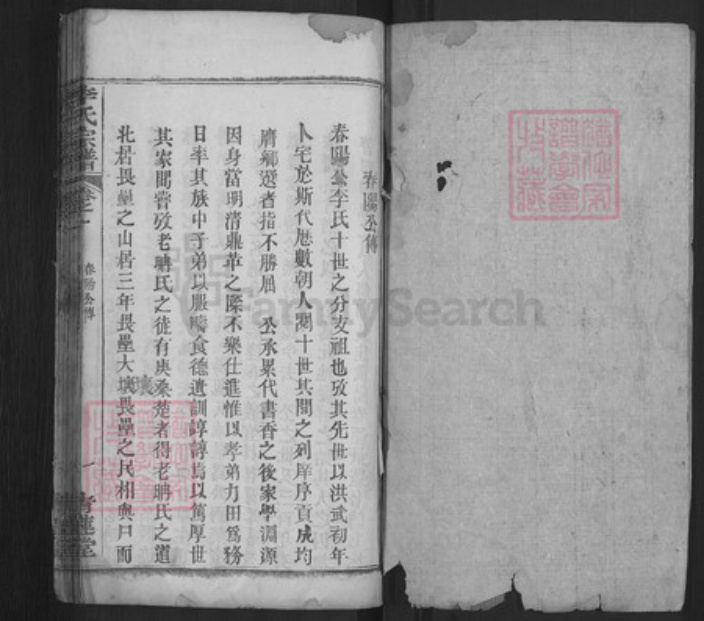 春陽公傳
春陽公李氏十世之分支祖也攷其先世以洪武初年
卜宅於斯代歷數朝人閱十世其間之列庠序貢成均
膺鄉選者指不勝屈 公承累代書香之後家學淵源
因身當明清鼎革之際不樂仕進惟以孝弟力田爲務
日率其族中子弟以服疇食德遺訓諄諄焉以篤厚世
其家間嘗攷老聃氏之徒有庚桑楚者得老聃氏之道
北居畏壘之山居三年畏壘大壤畏壘之民相與尸而
壤
李氏宗譜
卷之一
春陽公傳
一
青蓮堂
FamilySearch